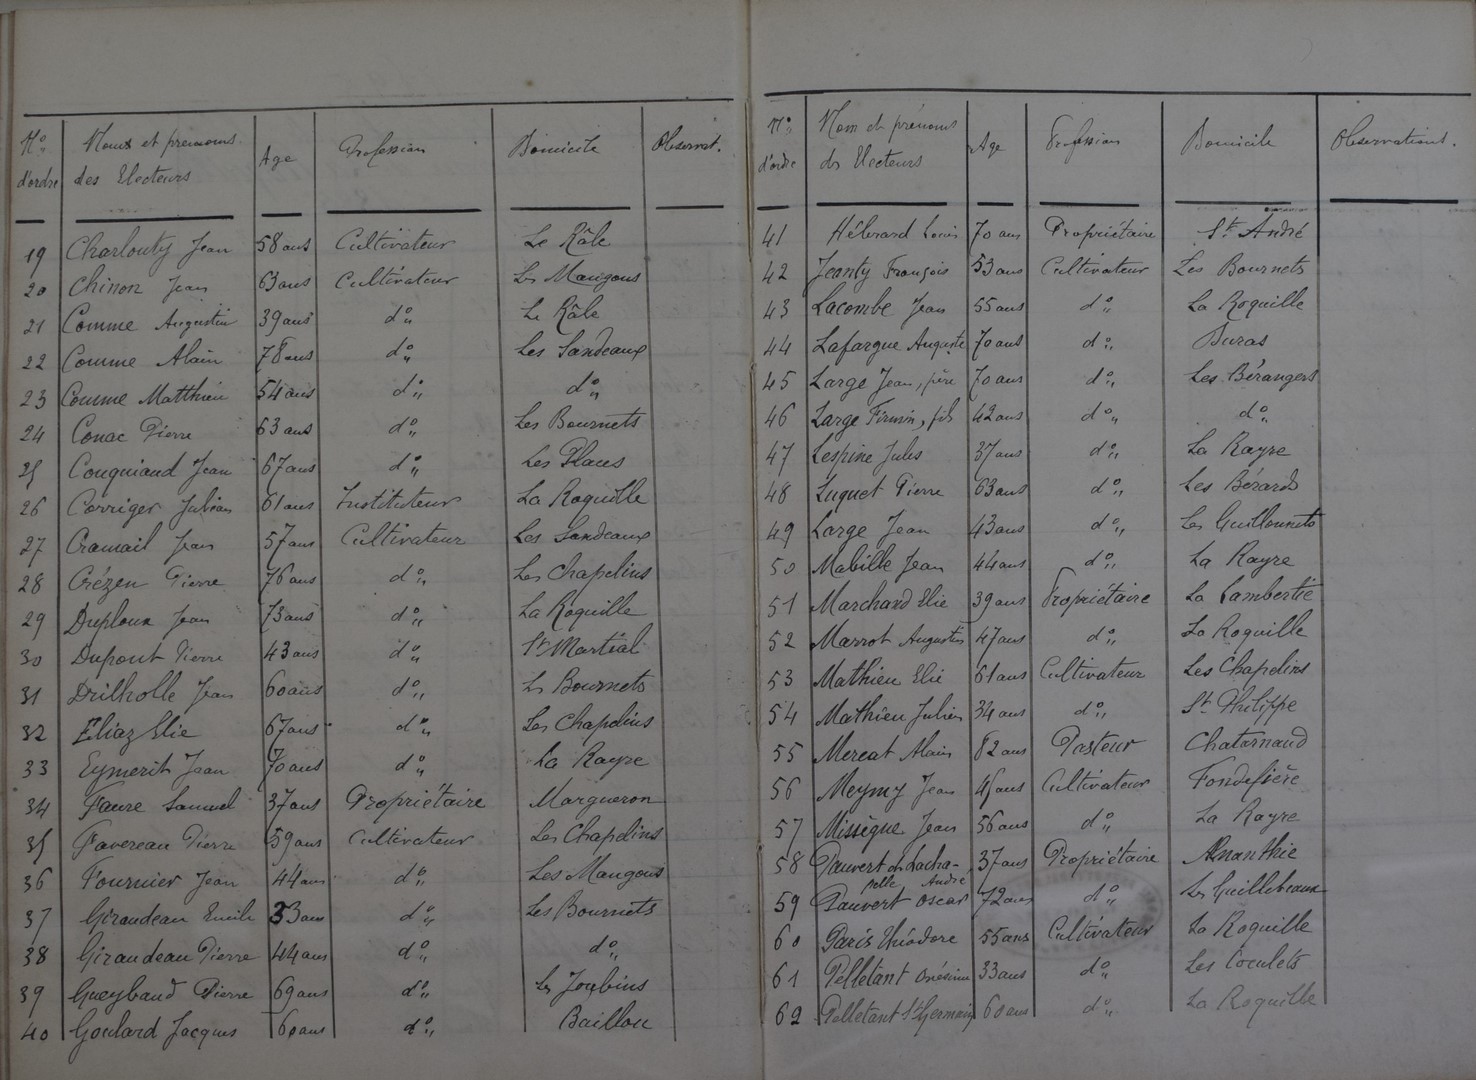 Nos d'ordre | Noms et prénoms des Electeurs | Age | Profession | Domicile | Observat.
19 | Charlouty Jean | 58 ans | Cultivateur | Le Râle
20 | Chinon Jean | 63 ans | Cultivateur | Les Maugons
21 | Comme Augustin | 39 ans | do " | Le Râle
22 | Comme Alain | 78 ans | do " | Les Sandeaux
23 | Comme Matthieu | 54 ans | do " | do "
24 | Conac Pierre | 63 ans | do " | Les Bournets
25 | Couquiaud Jean | 67 ans | do " | Les Places
26 | Corriger Julien | 61 ans | Instituteur | La Roquille
27 | Cramail Jean | 57 ans | Cultivateur | Les Sandeaux
28 | Crézen Pierre | 76 ans | do " | Les Chapelins
29 | Duploux Jean | 73 ans | do " | La Roquille
30 | Dupont Pierre | 43 ans | do " | St Martial
31 | Drilholle Jean | 60 ans | do " | Les Bournets
32 | Eliaz Elie | 67 ans | do " | Les Chapelins
33 | Eymerit Jean | 70 ans | do " | La Rayre
34 | Faure Samuel | 37 ans | Propriétaire | Margueron
35 | Favereau Pierre | 59 ans | Cultivateur | Les Chapelins
36 | Fournier Jean | 44 ans | do " | Les Maugons
37 | Giraudeau Emile | 33 ans | do " | Les Bournets
38 | Giraudeau Pierre | 44 ans | do " | do "
39 | Gueybaud Pierre | 69 ans | do " | Les Joubins
40 | Goulard Jacques | 60 ans | do " | Baillou
Nos d'ordre | Nom et prénoms des Electeurs | Age | Profession | Domicile | Observations.
41 | Héberard Louis | 70 ans | Propriétaire | St André
42 | Jeanty François | 53 ans | Cultivateur | Les Bournets
43 | Lacombe Jean | 55 ans | do " | La Roquille
44 | Lafargue Auguste | 70 ans | do " | Duras
45 | Large Jean, père | 70 ans | do " | Les Bérangers
46 | Large Firmin, fils | 42 ans | do " | do "
47 | Lespine Jules | 37 ans | do " | La Rayre
48 | Luquet Pierre | 63 ans | do " | Les Bérards
49 | Large Jean | 43 ans | do " | Les Guillonnets
50 | Mabille Jean | 44 ans | do " | La Rayre
51 | Marchand Elie | 39 ans | Propriétaire | La Lambertie
52 | Marrot Augustin | 47 ans | do " | La Roquille
53 | Mathieu Elie | 61 ans | Cultivateur | Les Chapelins
54 | Mathieu Julien | 34 ans | do " | St Philippe
55 | Mercat Alain | 82 ans | Pasteur | Chatarnaud
56 | Meymy Jean | 45 ans | Cultivateur | Fondefière
57 | Missègue Jean | 56 ans | do " | La Rayre
58 | Pauvert de Lacha- | 37 ans | Propriétaire | Ananthie
pelle André
59 | Pauvert Oscar | 72 ans | do " | Les Guillebeaux
60 | Paris Théodore | 55 ans | Cultivateur | La Roquille
61 | Pelletant Onésime | 33 ans | do " | Les Coculets
62 | Pelletant St Germain | 60 ans | do " | La Roquille